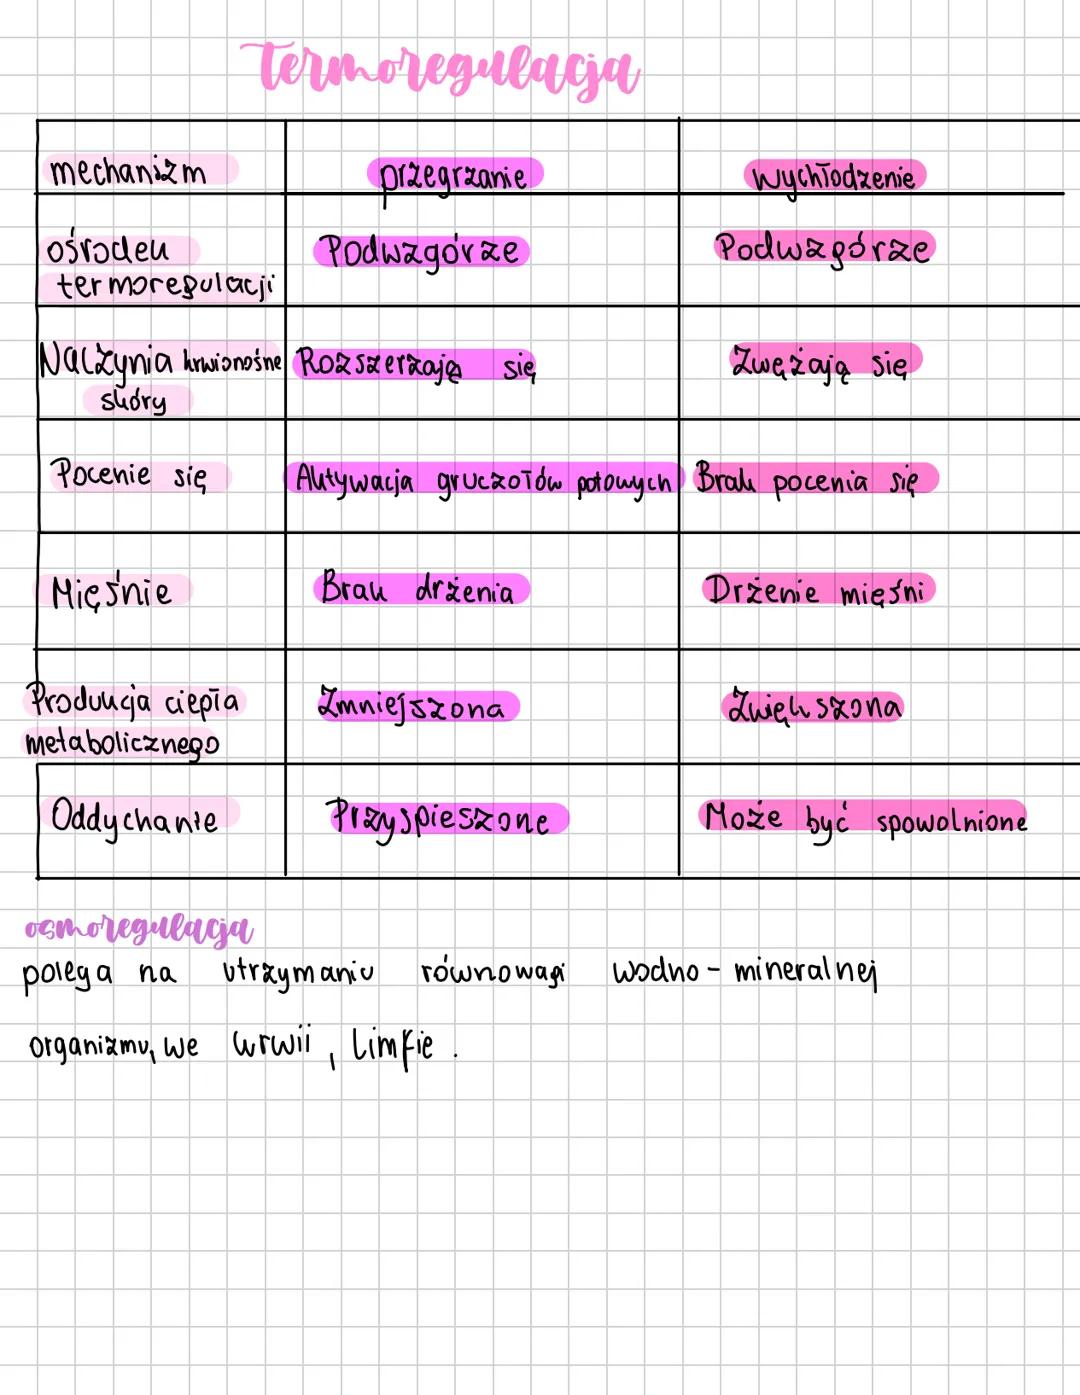 termoregulacja
mechanizm przegrzanie wychłodzenie
ośrodek Podwzgórze Podwzgórze
termoregulacji
Naczynia krwionośne Rozszerzają się Zwężają się
skóry
Pocenie się Aktywacja gruczołów potowych Brak pocenia się
Mięśnie Brak drżenia Drżenie mięśni
Produkcja ciepła Zmniejszona Zwiększona
metabolicznego
Oddychanie Przyspieszone Może być spowolnione
osmoregulacja
polega na utrzymaniu równowagi wodno - mineralnej
organizmu, we krwii , Limfie .